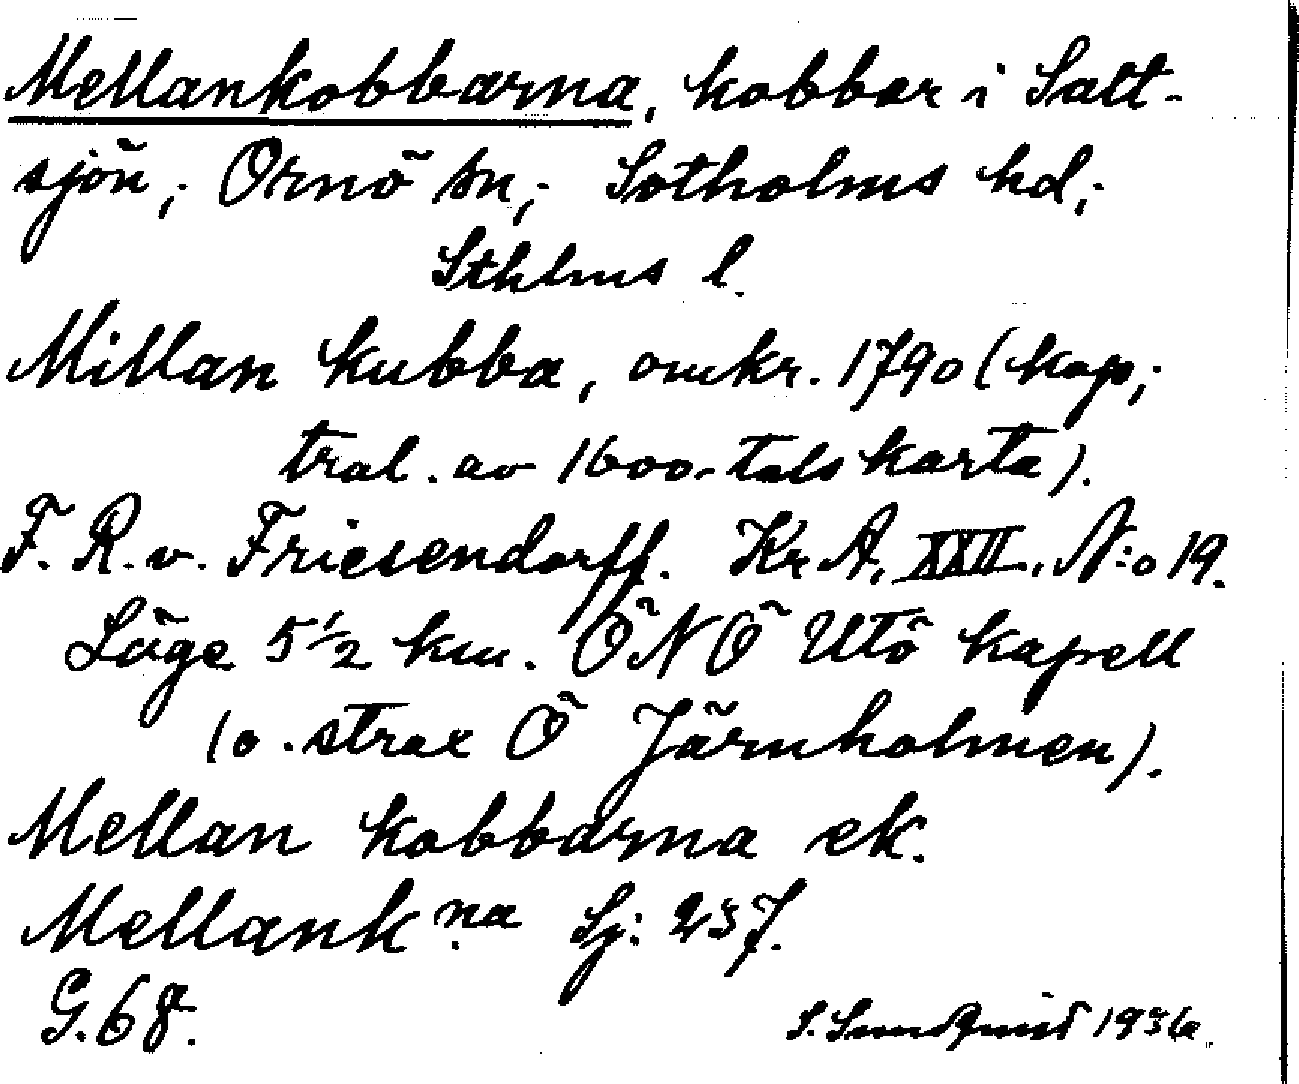 Mellankobbarna, kobbar i Salt-
sjön; Ornö sn; Sotholms hd;
Sthlms l.
Millan kubba, omkr. 1790 (kop;
tral. av 1600-tals karta).
F. R. v. Friesendorff. Kr A, XXII, N:o 19.
Läge 5 1/2 km. ÖNÖ Utö kapell
(o. strax Ö Järnholmen).
Mellan kobbarna ek.
Mellank.na Sj: 237.
G. 68.
S. Sundquist 1936